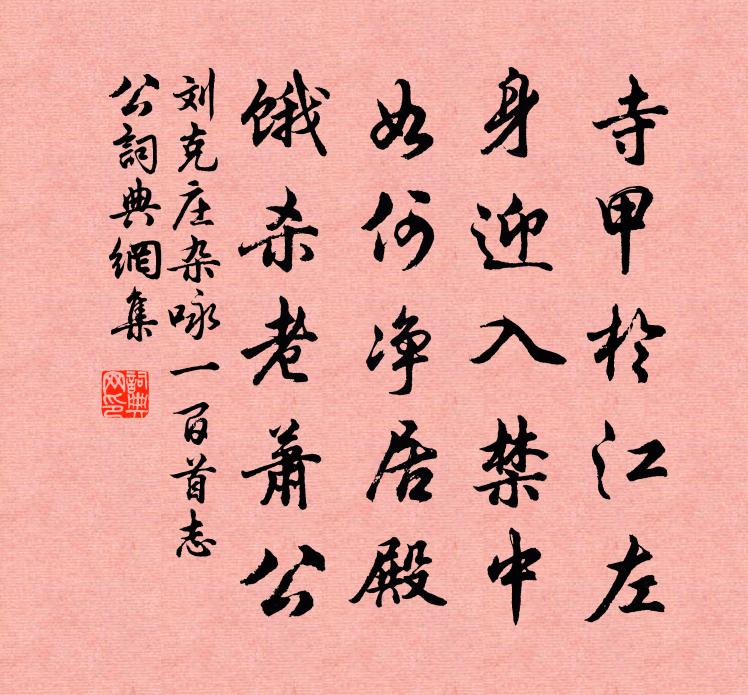 寺甲於江左
身迎入禁中
如何净居殿
饿杀老萧公
刘克庄杂咏一百首志
公词典網集
詞典網印